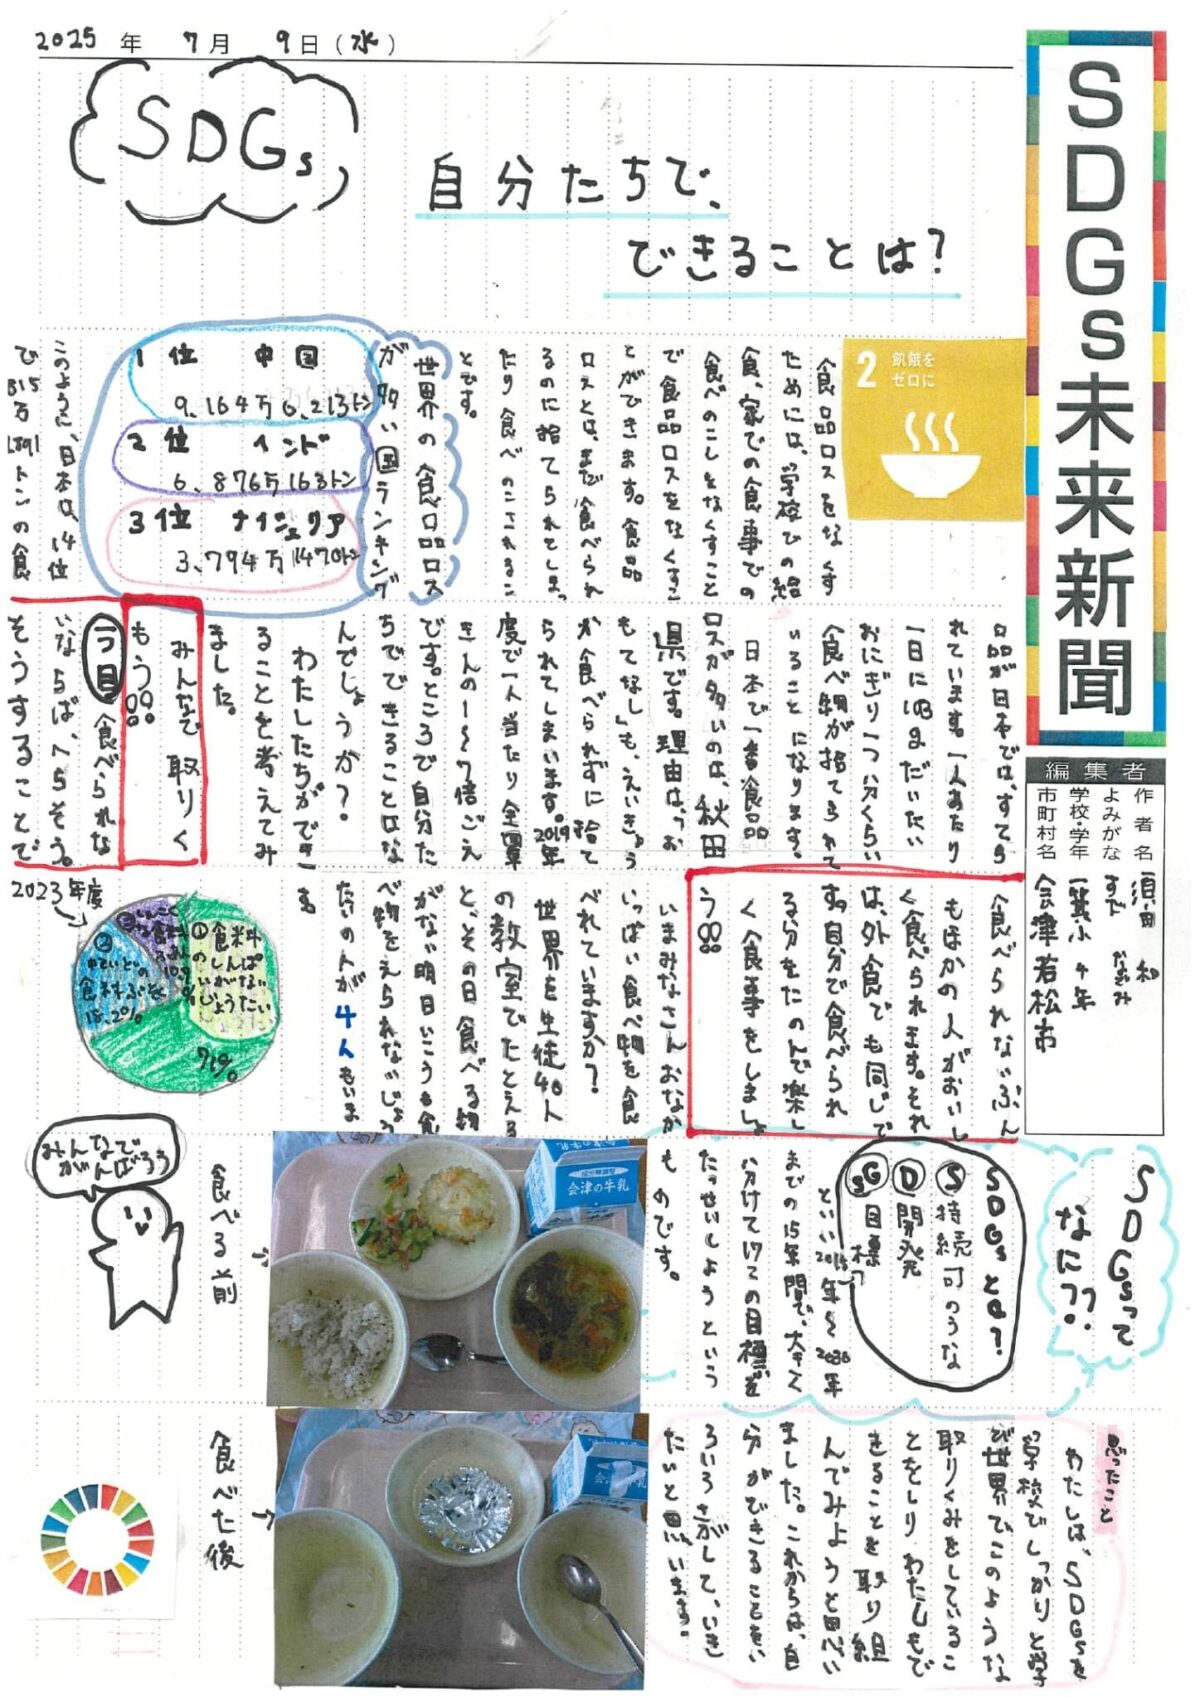 2025年 7月 9日(水)
SDGs未来新聞
SDGs
自分たちで、
できることは?
編集者
作者名 須田 和
よみがな すだ なごみ
学校・学年 一箕小 4年
市町村名 会津若松市
2 飢餓を
ゼロに
食品ロスをなくす
ためには、学校での給
食、家での食事での
食べのこしをなくすこと
で食品ロスをなくすこ
とができます。食品
ロスとは、まだ食べられ
るのに捨てられてしまっ
たり食べのこされるこ
とです。
世界の食品ロス
が多い国ランキング
1位 中国
9,164万6,213トン
2位 インド
6,876万163トン
3位 ナイジェリア
3,794万1470トン
このように、日本は、14位
で815万1891トンの食
品が日本では、すてら
れています。一人あたり
一日に103gだいたい
おにぎり一つ分くらい
食べ物が捨てられて
いることになります。
日本で一番食品
ロスが多いのは、秋田
県です。理由は、「お
もてなし」も、えいきょう
か食べられずに捨て
られてしまいます。2019年
度で一人当たり全国
きんの1〜7倍ごえ
です。ところで自分た
ちでできることはな
んでしょうか?
わたしたちができ
ることを考えてみ
ました。
みんなで 取りく
もう
一つ目 食べられな
いならば、へらそう。
そうすることで
食べられないぶん
もほかの人がおいし
く食べられます。それ
は、外食でも同じで
す。自分で食べられ
る分をたのんで楽し
く食事をしましょ
う
いまみなさんおなか
いっぱい食べ物を食
べれていますか?
世界を生徒40人
の教室でたとえる
と、その日食べる物
がない明日いこうも食
べ物をえられないじょう
たいの人が4人もいま
す
2023年度
①食料
のしんぱ
いがない
じょうたい
71%
②中ていどの
食料ぶそく
18.2%
SDGsって
なに??
SDGsとは?
S 持続可のうな
D 開発
Gs 目標
といい2015年〜2030年
までの15年間で、大きく
分けて17での目標を
たっせいしようという
ものです。
みんなで
がんばろう
食べる前
会津の牛乳
食べた後
会津の牛乳
思ったこと
わたしは、SDGsを
学校でしっかりと学
び世界でこのような
取りくみをしているこ
とをしりわたしもで
きることを取り組
んでみようと思い
ました。これからは、自
分ができることをい
ろいろさがして、いき
たいと思います。